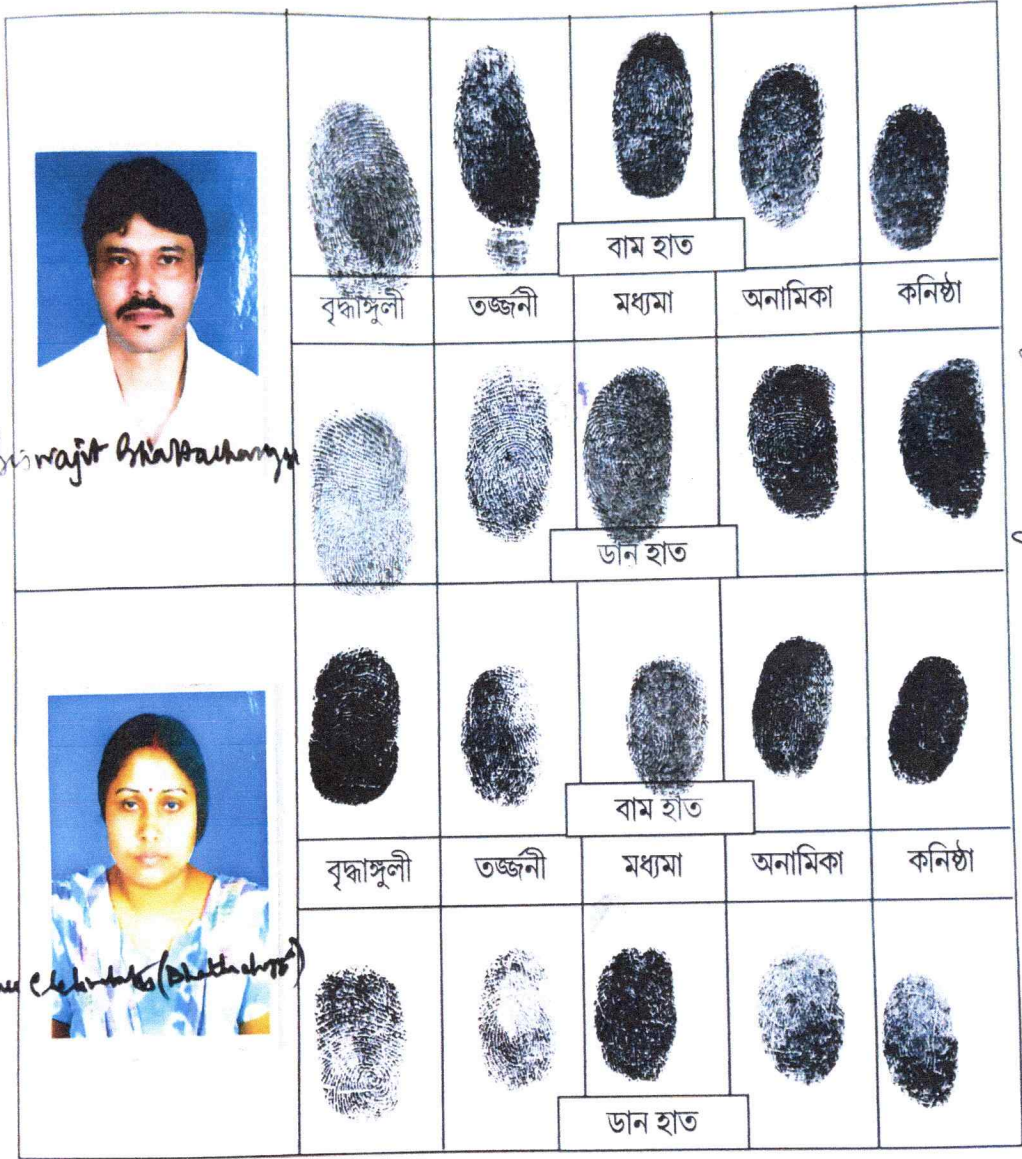 বাম হাত
বৃদ্ধাঙ্গুলী তর্জ্জনী মধ্যমা অনামিকা কনিষ্ঠা
Bhattacharyya
ডান হাত
বাম হাত
বৃদ্ধাঙ্গুলী তর্জ্জনী মধ্যমা অনামিকা কনিষ্ঠা
ডান হাত